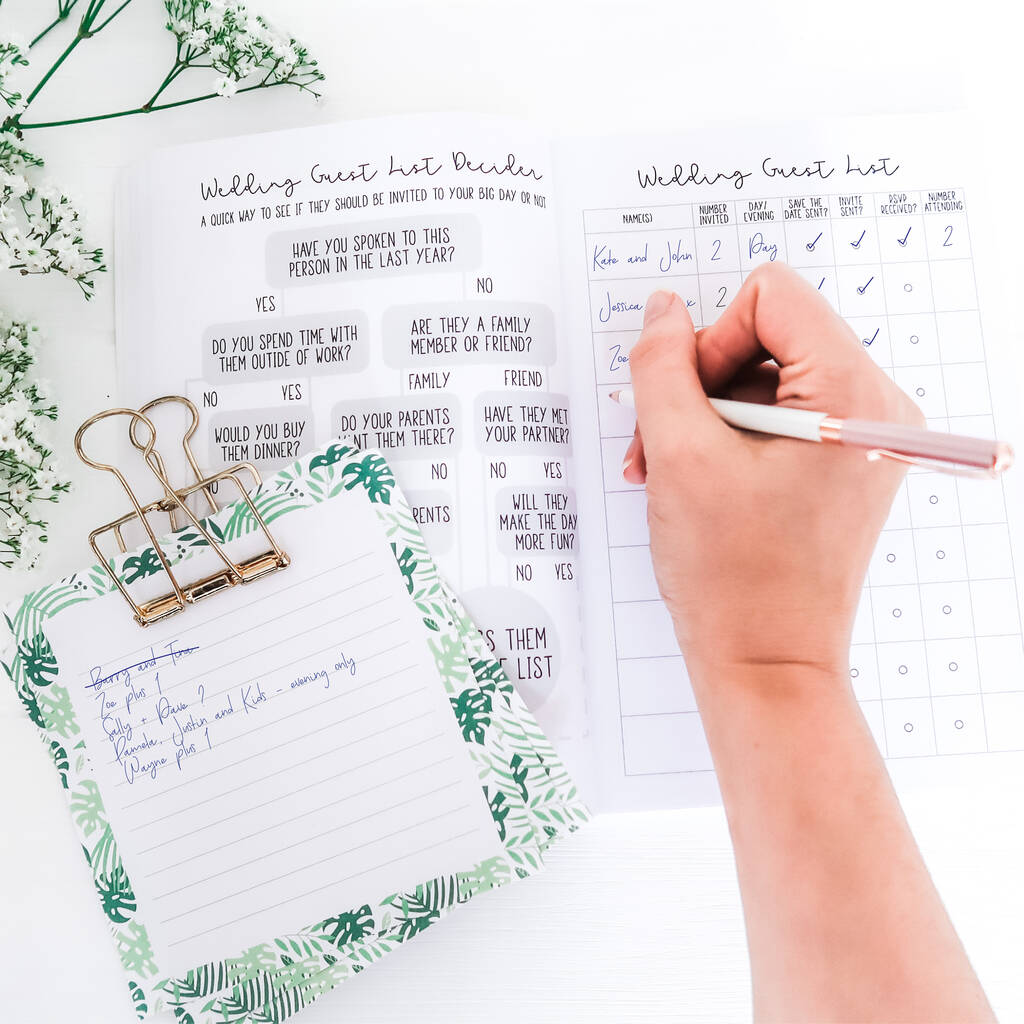 Wedding Guest List Decider
A QUICK WAY TO SEE IF THEY SHOULD BE INVITED TO YOUR BIG DAY OR NOT
HAVE YOU SPOKEN TO THIS
PERSON IN THE LAST YEAR?
YES NO
DO YOU SPEND TIME WITH
THEM OUTSIDE OF WORK?
ARE THEY A FAMILY
MEMBER OR FRIEND?
NO YES
FAMILY FRIEND
WOULD YOU BUY
THEM DINNER?
DO YOUR PARENTS
THEM THERE?
HAVE THEY MET
YOUR PARTNER?
NO
NO YES
WILL THEY
MAKE THE DAY
MORE FUN?
NO YES
THEM
LIST
Wedding Guest List
NAME(S) NUMBER INVITED DAY/ EVENING SAVE THE DATE SENT? INVITE SENT? RSVP RECEIVED? NUMBER ATTENDING
Kate and John 2 Day ✓ ✓ ✓ 2
Jessica 2 ✓ ✓
Zoe ✓
Barry and Tina
Zoe plus 1
Sally + Dave ?
Pamela, Justin and Kids - evening only
Wayne plus 1